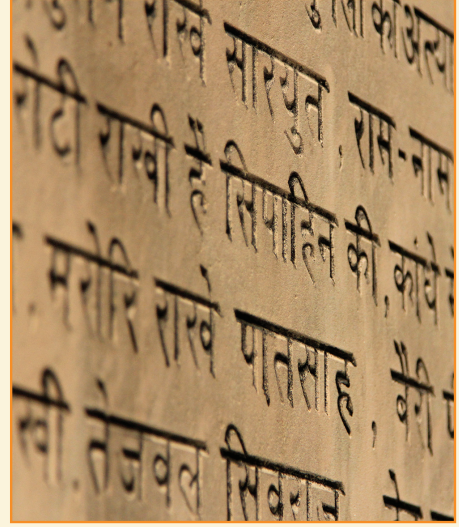 की अत्या
राखे सारयुत , राम-नाम
रोटी राखी है सिपाहिन की, कांधे
. मरोरि राखे पातसाह, बैरी
खी. तेजबल सिवराज